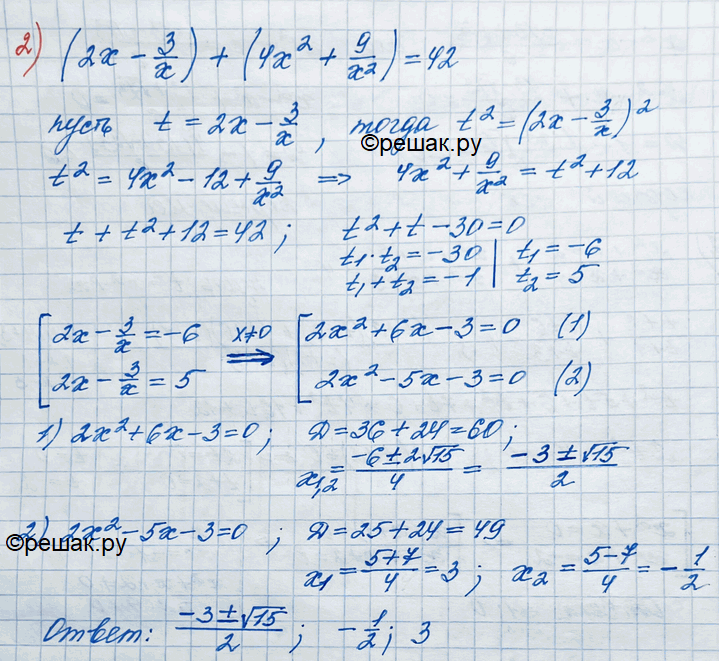 2) (2x - 3/x) + (4x² + 9/x²) = 42
пусть t = 2x - 3/x, тогда t² = (2x - 3/x)²
©решак.ру
t² = 4x² - 12 + 9/x² => 4x² + 9/x² = t² + 12
t + t² + 12 = 42; t² + t - 30 = 0
t₁·t₂ = -30 | t₁ = -6
t₁ + t₂ = -1 | t₂ = 5
[ 2x - 3/x = -6 x≠0 => [ 2x² + 6x - 3 = 0 (1)
2x - 3/x = 5 2x² - 5x - 3 = 0 (2)
1) 2x² + 6x - 3 = 0; D = 36 + 24 = 60;
x₁,₂ = (-6 ± 2√15)/4 = (-3 ± √15)/2
2) 2x² - 5x - 3 = 0; D = 25 + 24 = 49
©решак.ру
x₁ = (5+7)/4 = 3; x₂ = (5-7)/4 = -1/2
Ответ: (-3 ± √15)/2; -1/2; 3